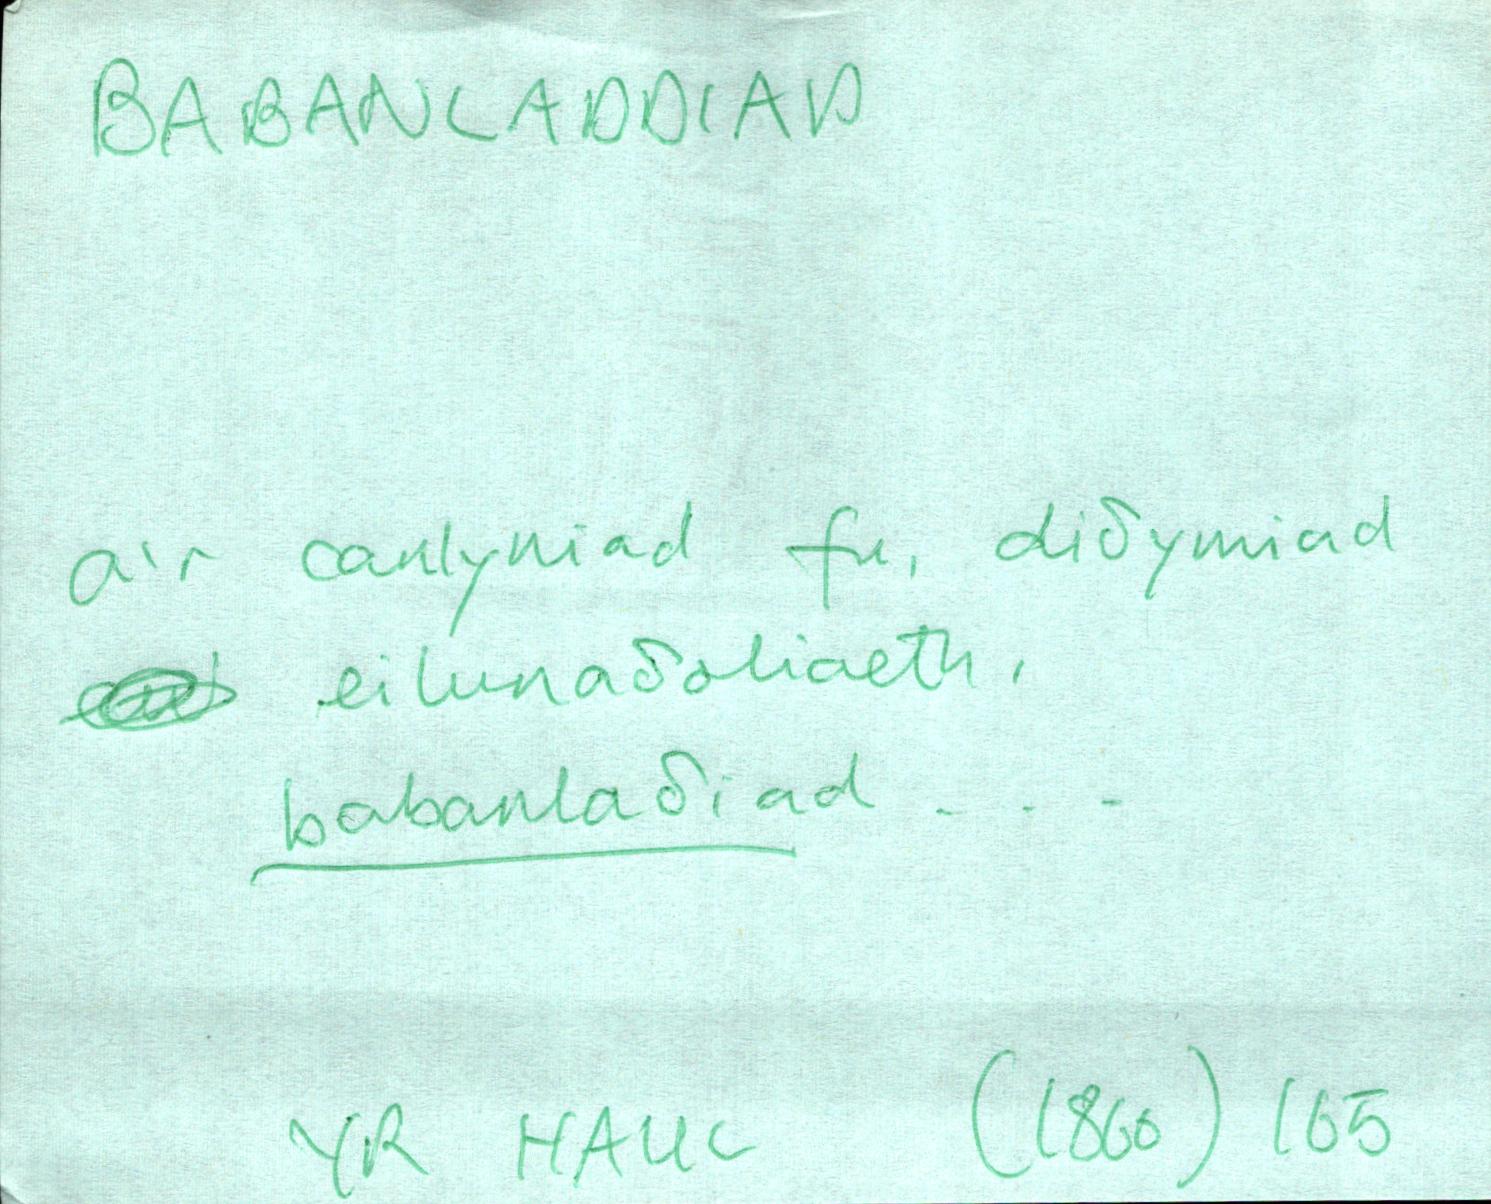 BABANLADDIAD
a'r canlyniad fu, diδymiad
eilunaδoliaeth,
babanlaδiad - - -
YR HAUL (1860) 165